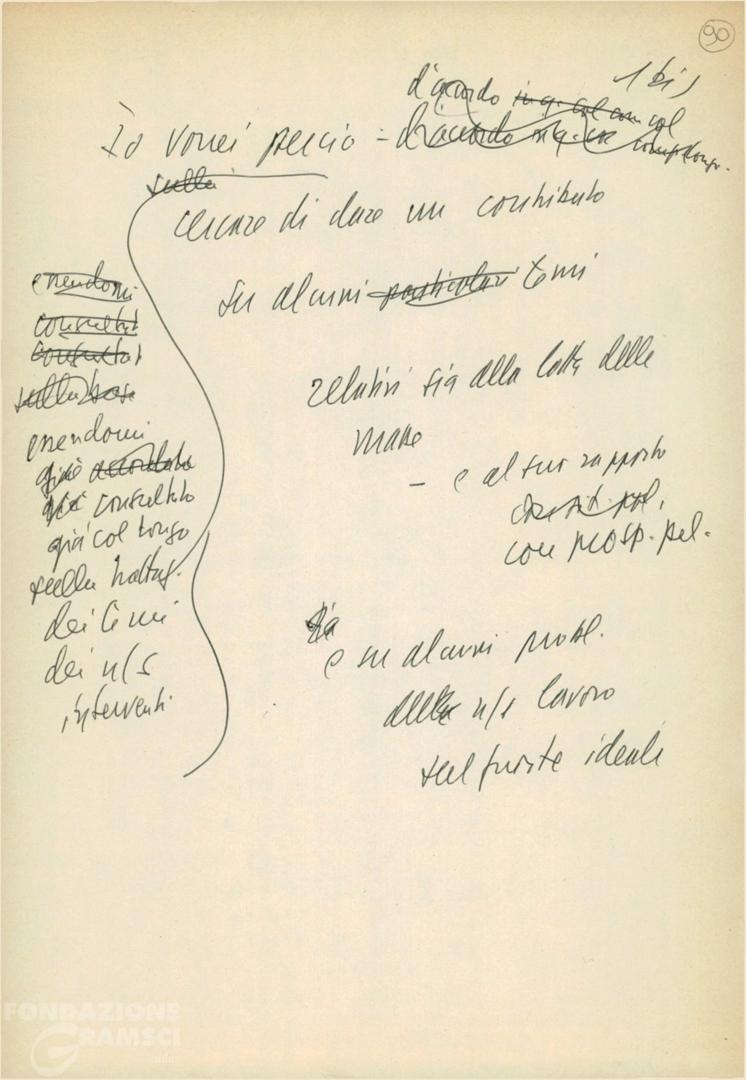 90
1 bis
d'accordo in q. col com col
Io vorrei perciò - d'accordo
sulla
cercare di dare un contributo
su alcuni particolari temi
relativi sia alla lotta delle
masse
- e al suo rapporto
con prosp. pol.
sia
e su alcuni probl.
della n/s lavoro
sul fronte ideale
essendomi
consultat
consultat
sulla base
essendomi
già accordato
già consultato
già col Longo
sulla
dei temi
dei n/s
interventi
FONDAZIONE
GRAMSCI